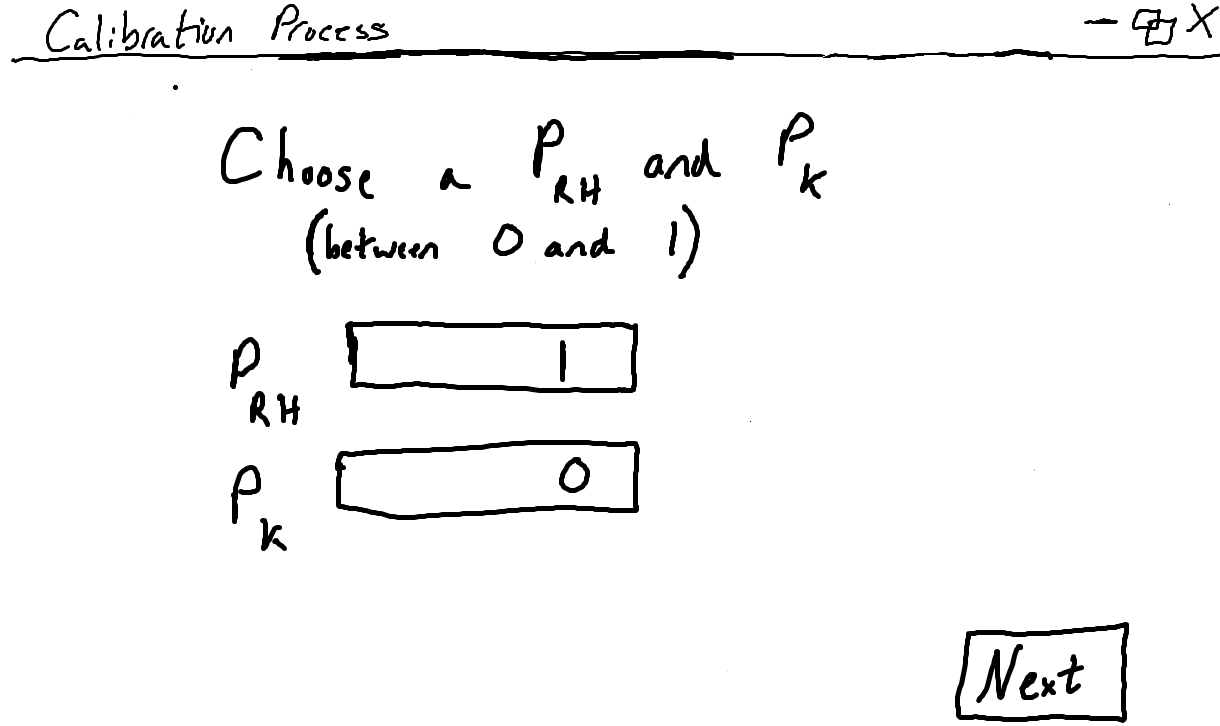 Calibration Process
Choose a P_RH and P_K
(between 0 and 1)
P_RH 1
P_K 0
Next